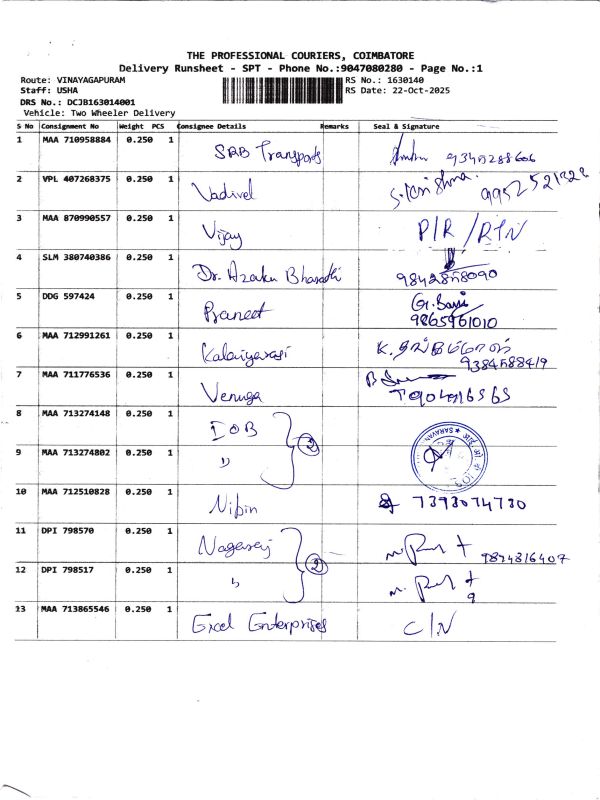 THE PROFESSIONAL COURIERS, COIMBATORE
Delivery Runsheet - SPT - Phone No.:9047080280 - Page No.:1
Route: VINAYAGAPURAM RS No.: 1630140
Staff: USHA RS Date: 22-Oct-2025
DRS No.: DCJB163014001
Vehicle: Two Wheeler Delivery
S No Consignment No Weight PCS Consignee Details Remarks Seal & Signature
1 MAA 710958884 0.250 1 SRB Transports 9345288606
2 VPL 407268375 0.250 1 Vadivel S. Krishna
3 MAA 870990557 0.250 1 Vijay P/R / RTN
4 SLM 380740386 0.250 1 Dr. Azaku Bharathi
5 DDG 597424 0.250 1 Praneet
9865961010
6 MAA 712991261 0.250 1 Kalaiyarasi K.
7 MAA 711776536 0.250 1 Venuga
8 MAA 713274148 0.250 1 IOB
2
9 MAA 713274802 0.250 1 "
10 MAA 712510828 0.250 1 Nibin 7393074730
11 DPI 798570 0.250 1 Nagaraj 9894316407
2
12 DPI 798517 0.250 1 "
13 MAA 713865546 0.250 1 Excel Enterprises C/N